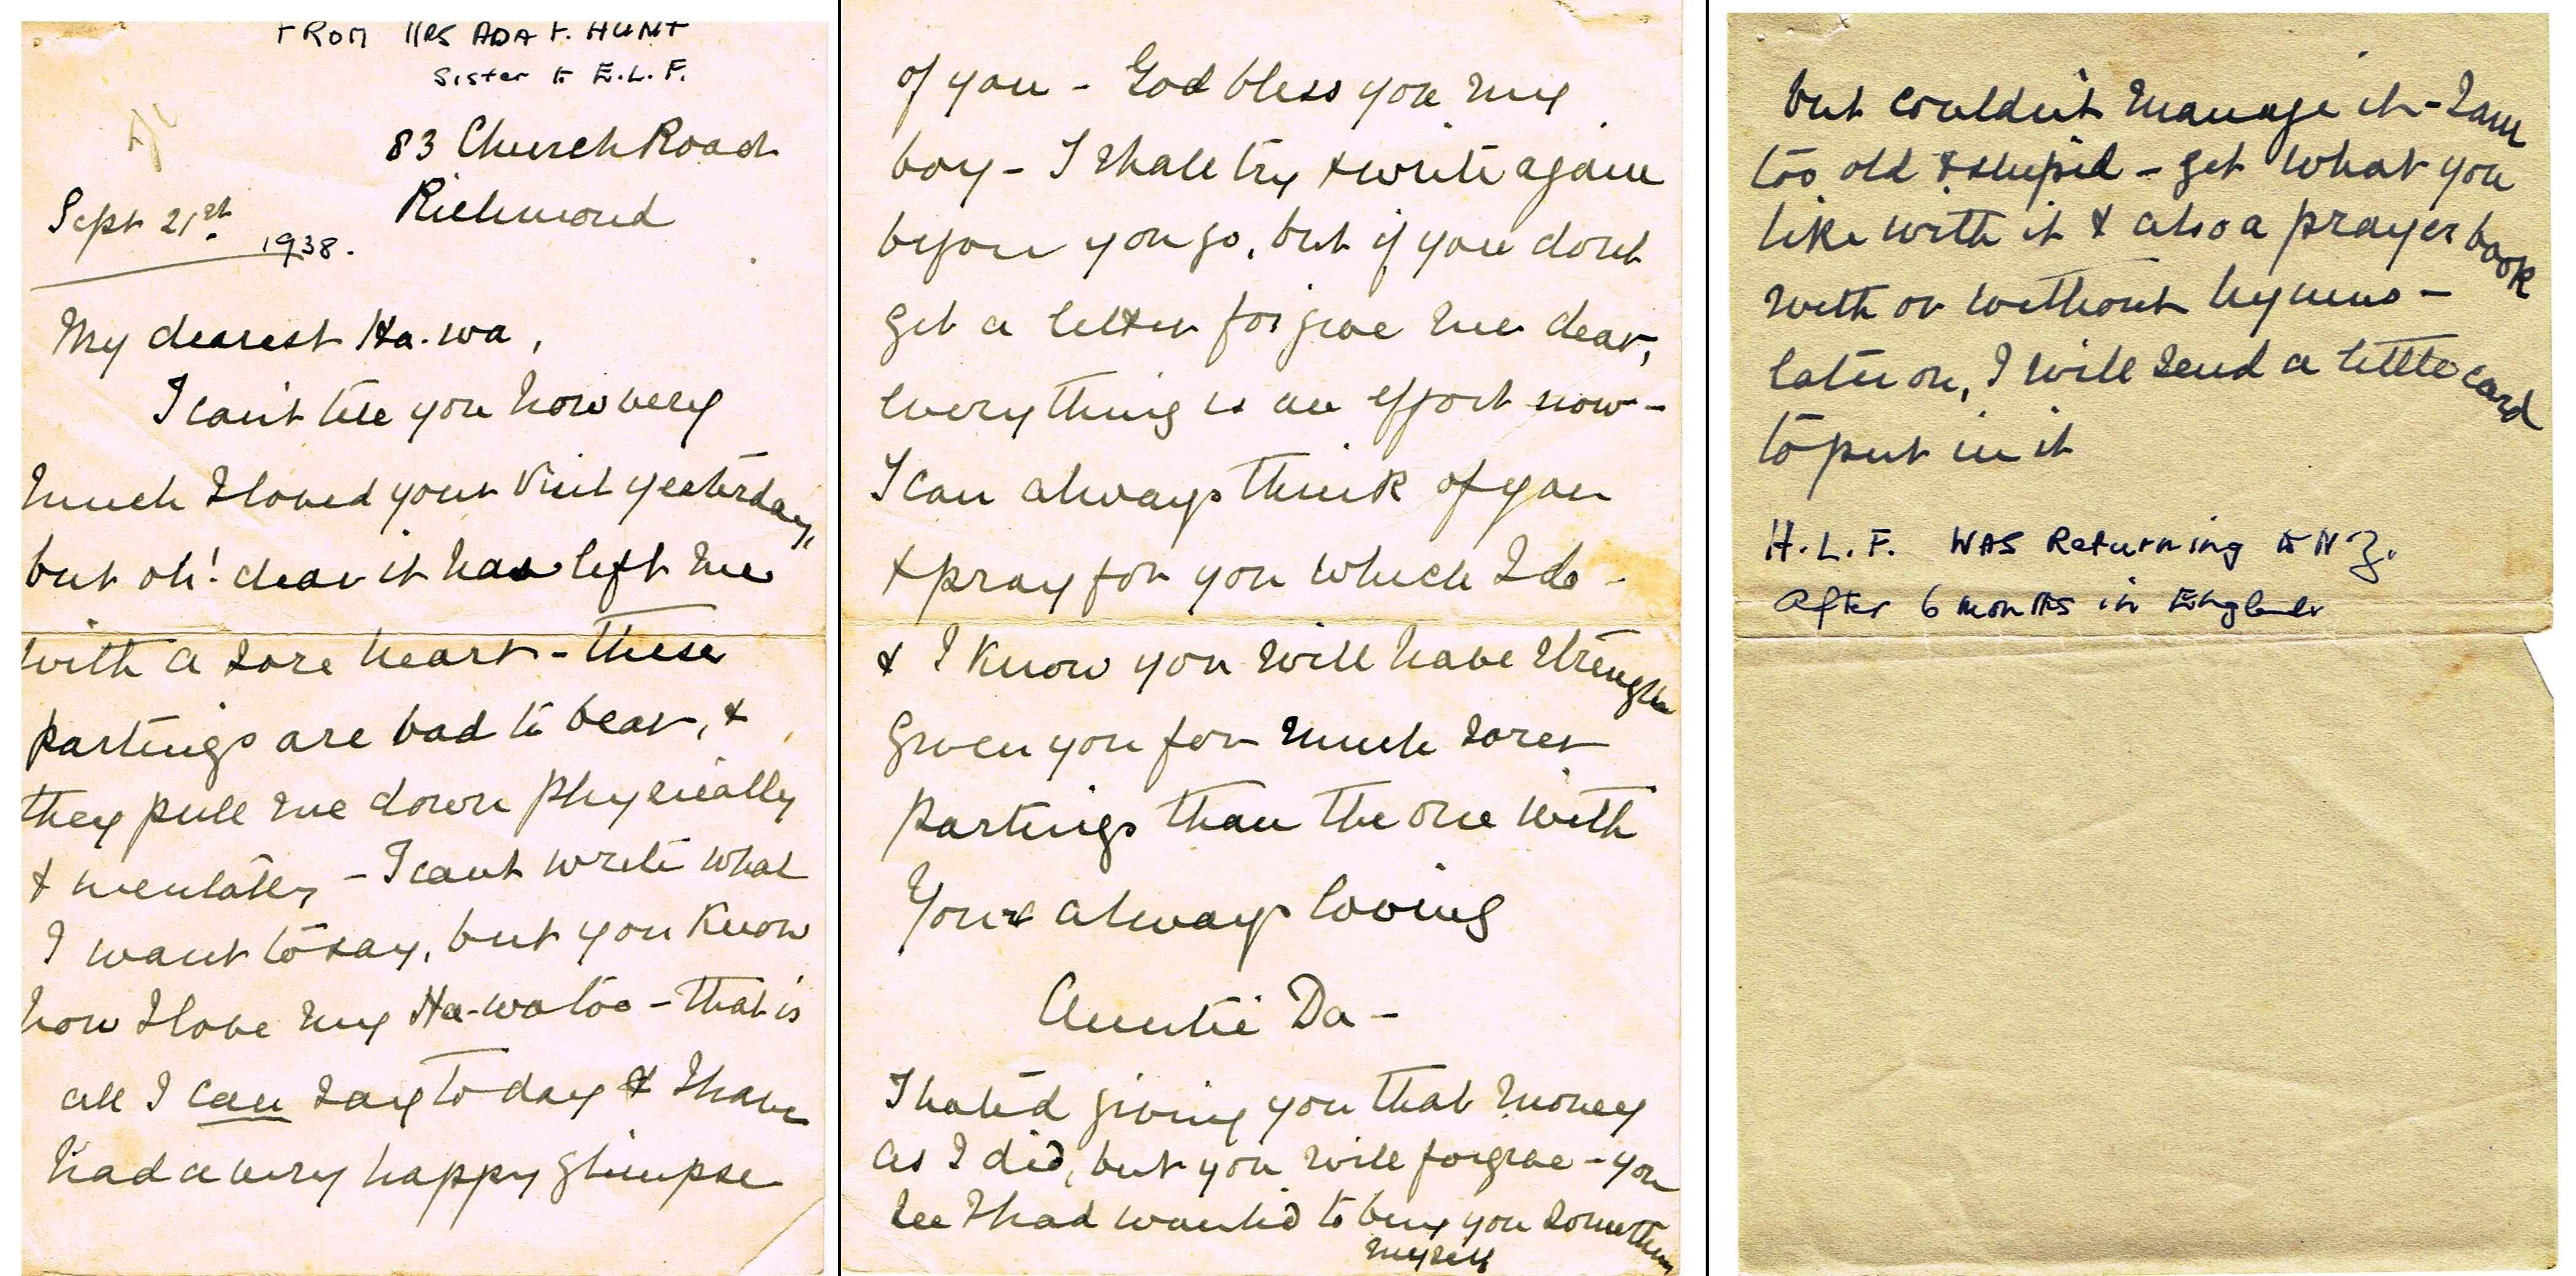 FROM MRS ADA F. HUNT
Sister to E.L.F.
83 Church Road
Richmond
Sept 21st
1938.
My dearest Ha-wa,
I can't tell you how very
much I loved your visit yesterday,
but oh! dear it has left me
with a sore heart - these
partings are bad to bear, &
they pull me down physically
& mentally, - I cant write what
I want to say, but you know
how I love my Ha-wa too - that is
all I can say to day & I have
had a very happy glimpse
of you - God bless you my
boy - I shall try & write again
before you go, but if you dont
get a letter forgive me dear,
everything is an effort now -
I can always think of you
& pray for you which I do -
& I know you will have strength
given you for much sorer
partings than the one with
Your always loving
Auntie Da -
I hated giving you that money
as I did, but you will forgive - you
see I had wanted to buy you something
myself
but couldn't manage it - I am
too old & stupid - get what you
like with it & also a prayer book
with or without hymns -
later on, I will send a little card
to put in it
H.L.F. WAS Returning to N Z.
After 6 months in England